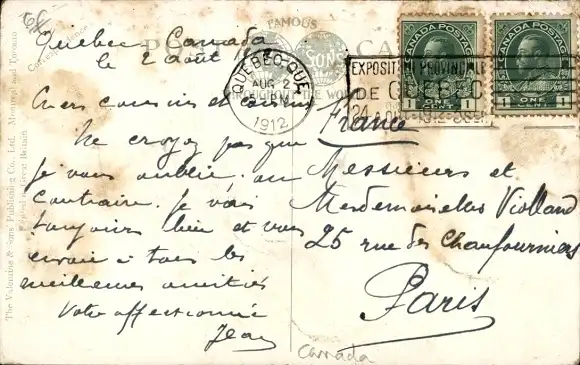 Quebec Canada
le 2 août
Chers cousins et cousines
Ne croyez pas que
je vous oublie, au
contraire. je vais
toujours bien et vous
envoie à tous les
meilleures amitiés
Votre affectionné
Jean
FAMOUS
POST CARD
SONS
THROUGHOUT THE WORLD
Correspondence
The Valentine & Sons' Publishing Co., Ltd. Montreal and Toronto
Printed in Great Britain
QUEBEC·QUE.
AUG 2
PM
1912
EXPOSITION PROVINCIALE
DE QUEBEC
CANADA POSTAGE
1 ONE 1
CANADA POSTAGE
1 ONE 1
France
Messieurs et
Mesdemoiselles Violland
25 rue des Chaufourniers
Paris
Canada